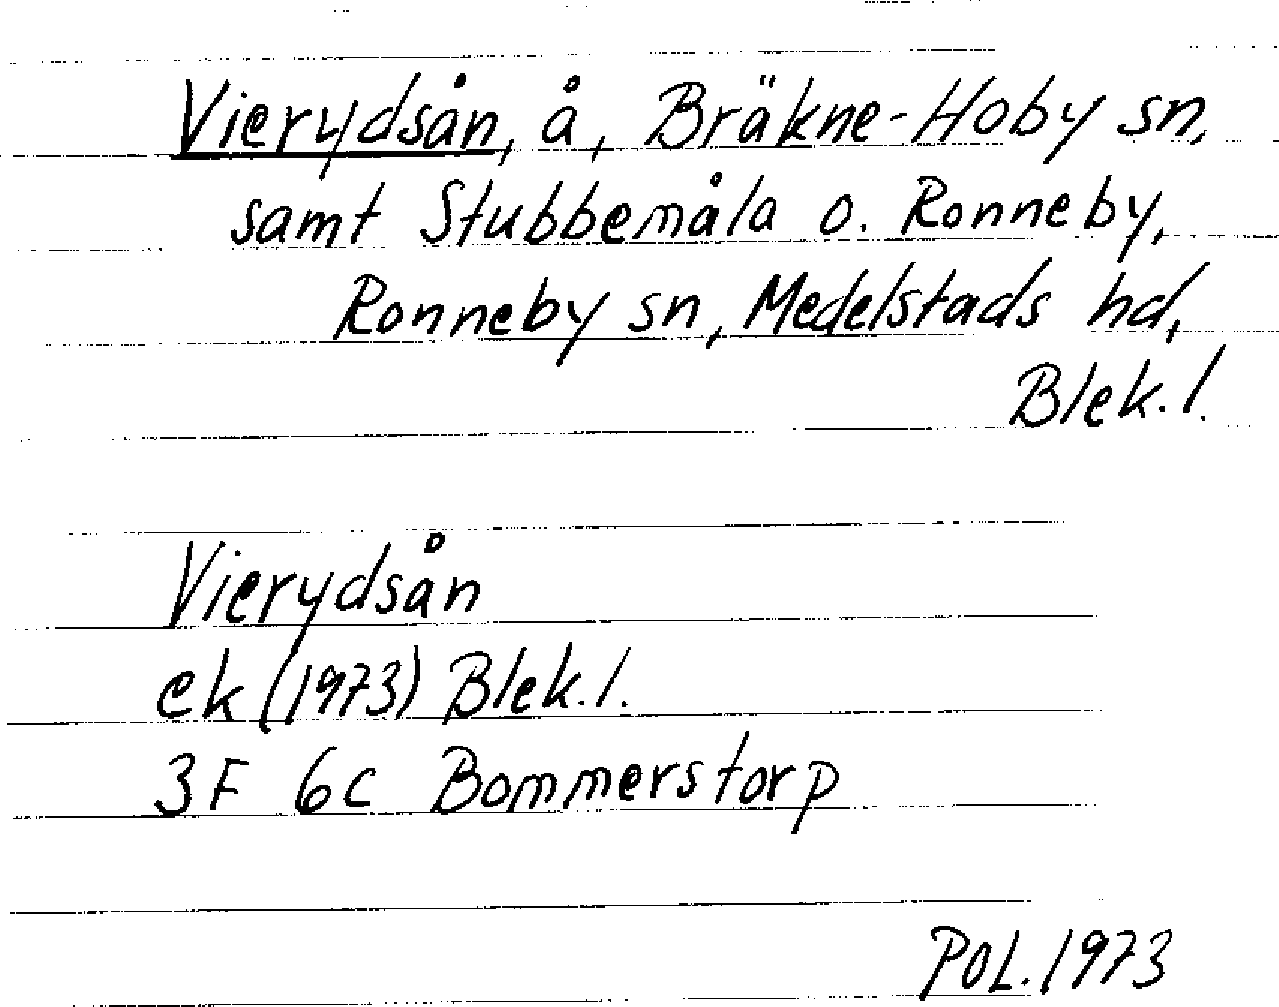 Vierydsån, å, Bräkne-Hoby sn,
samt Stubbemåla o. Ronneby,
Ronneby sn, Medelstads hd,
Blek. l.
Vierydsån
ek (1973) Blek. l.
3F 6c Bommerstorp
POL. 1973